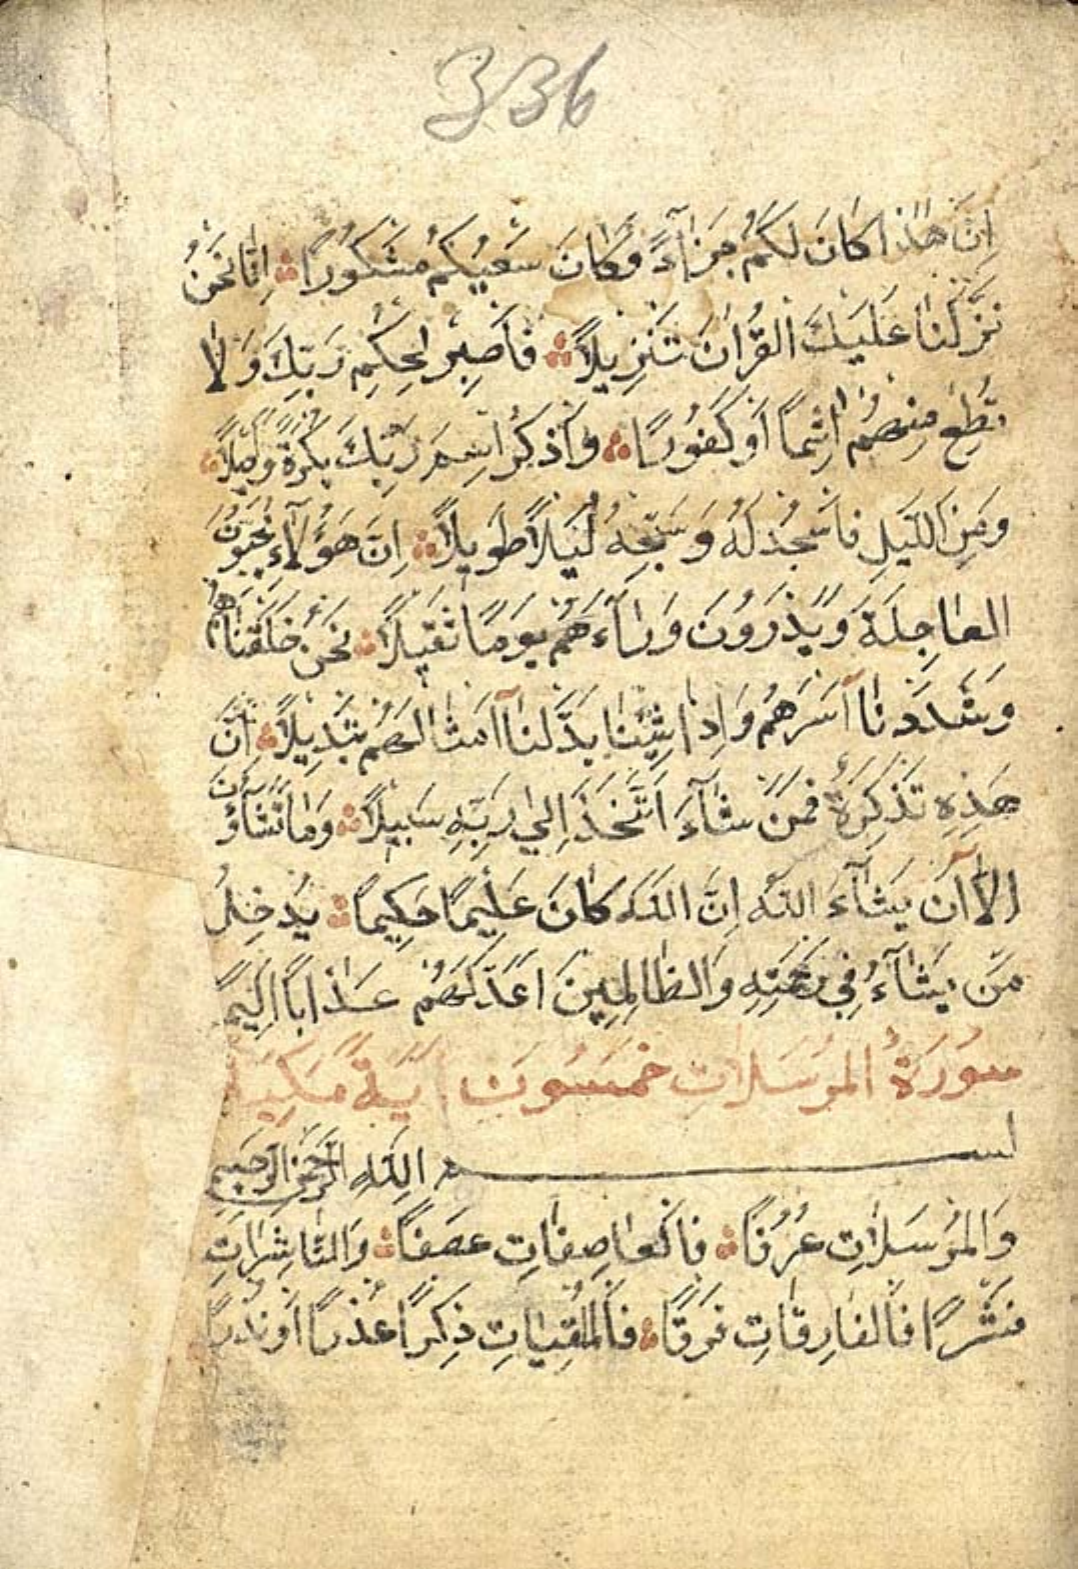 336
اِنَّ هٰذَا كَانَ لَكُمْ جَزَآءً وَكَانَ سَعْيُكُمْ مَشْكُورًا اِنَّا نَحْنُ
نَزَّلْنَا عَلَيْكَ الْقُرْاٰنَ تَنْزِيلًا فَاصْبِرْ لِحُكْمِ رَبِّكَ وَلَا
تُطِعْ مِنْهُمْ اٰثِمًا اَوْ كَفُورًا وَاذْكُرِ اسْمَ رَبِّكَ بُكْرَةً وَاَصِيلًا
وَمِنَ اللَّيْلِ فَاسْجُدْ لَهُ وَسَبِّحْهُ لَيْلًا طَوِيلًا اِنَّ هَؤُلَآءِ يُحِبُّونَ
الْعَاجِلَةَ وَيَذَرُونَ وَرَآءَهُمْ يَوْمًا ثَقِيلًا نَحْنُ خَلَقْنَاهُمْ
وَشَدَدْنَآ اَسْرَهُمْ وَاِذَا شِئْنَا بَدَّلْنَآ اَمْثَالَهُمْ تَبْدِيلًا اِنَّ
هَذِهِ تَذْكِرَةٌ فَمَنْ شَآءَ اتَّخَذَ اِلَي رَبِّهِ سَبِيلًا وَمَا تَشَآؤُنَ
اِلَّآ اَنْ يَشَآءَ اللَّهُ اِنَّ اللَّهَ كَانَ عَلِيمًا حَكِيمًا يُدْخِلُ
مَنْ يَشَآءُ فِي رَحْمَتِهِ وَالظَّالِمِينَ اَعَدَّ لَهُمْ عَذَابًا اَلِيمًا
سُورَةُ الْمُرْسَلَاتِ خَمْسُونَ اٰيَةً مَكِّيَّة
بسم اللَّهِ الرَّحْمٰنِ الرَّحِيمِ
وَالْمُرْسَلَاتِ عُرْفًا فَالْعَاصِفَاتِ عَصْفًا وَالنَّاشِرَاتِ
نَشْرًا فَالْفَارِقَاتِ فَرْقًا فَالْمُلْقِيَاتِ ذِكْرًا عُذْرًا اَوْ نُذْرًا